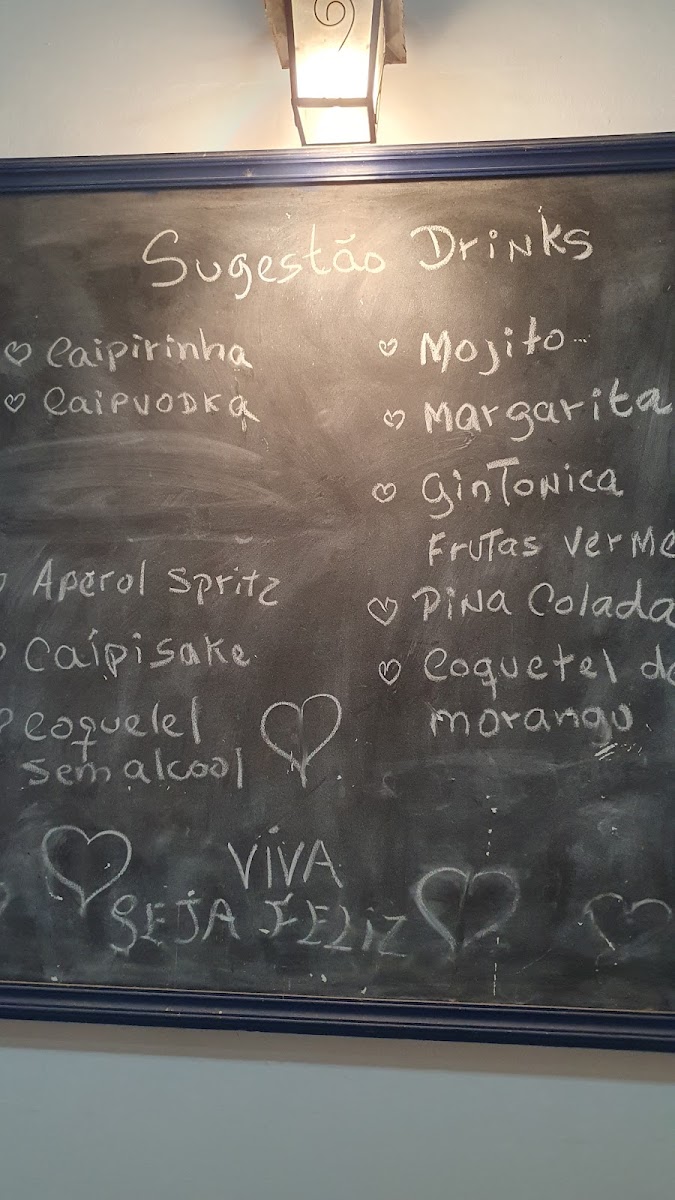 Sugestão Drinks
Caipirinha
CaipVODKa
Aperol Spritz
Caípisake
Coquelel
sem alcool
Mojito
Margarita
GinTonica
Frutas Verme
Pina Colada
Coquetel de
morango
VIVA
SEJA FELIZ